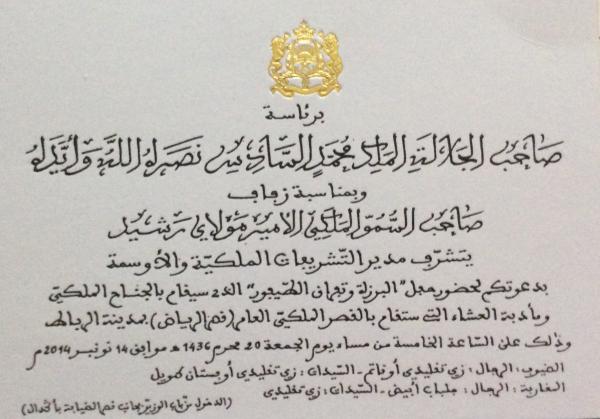 برئاسة
صاحب الجلالة الملك محمد السادس نصره الله وأيده
وبمناسبة زفاف
صاحب السمو الملكي الأمير مولاي رشيد
يتشرف مدير التشريفات الملكية والأوسمة
بدعوتكم لحضور حفل "البرزة وتيجان الطيفور" الذي سيقام بالجناح الملكي
ومأدبة العشاء التي ستقام بالقصر الملكي العام (قصر الرياض) بمدينة الرباط
وذلك على الساعة الخامسة من مساء يوم الجمعة 20 محرم 1436 ه موافق 14 نونبر 2014 م
الضيوف : الرجال : زي تقليدي أو قاتم - السيدات : زي تقليدي أو فستان طويل
المغاربة : الرجال : جلباب أبيض - السيدات : زي تقليدي
(الدخول من باب الوزير بجانب قصر الضيافة بأكدال)